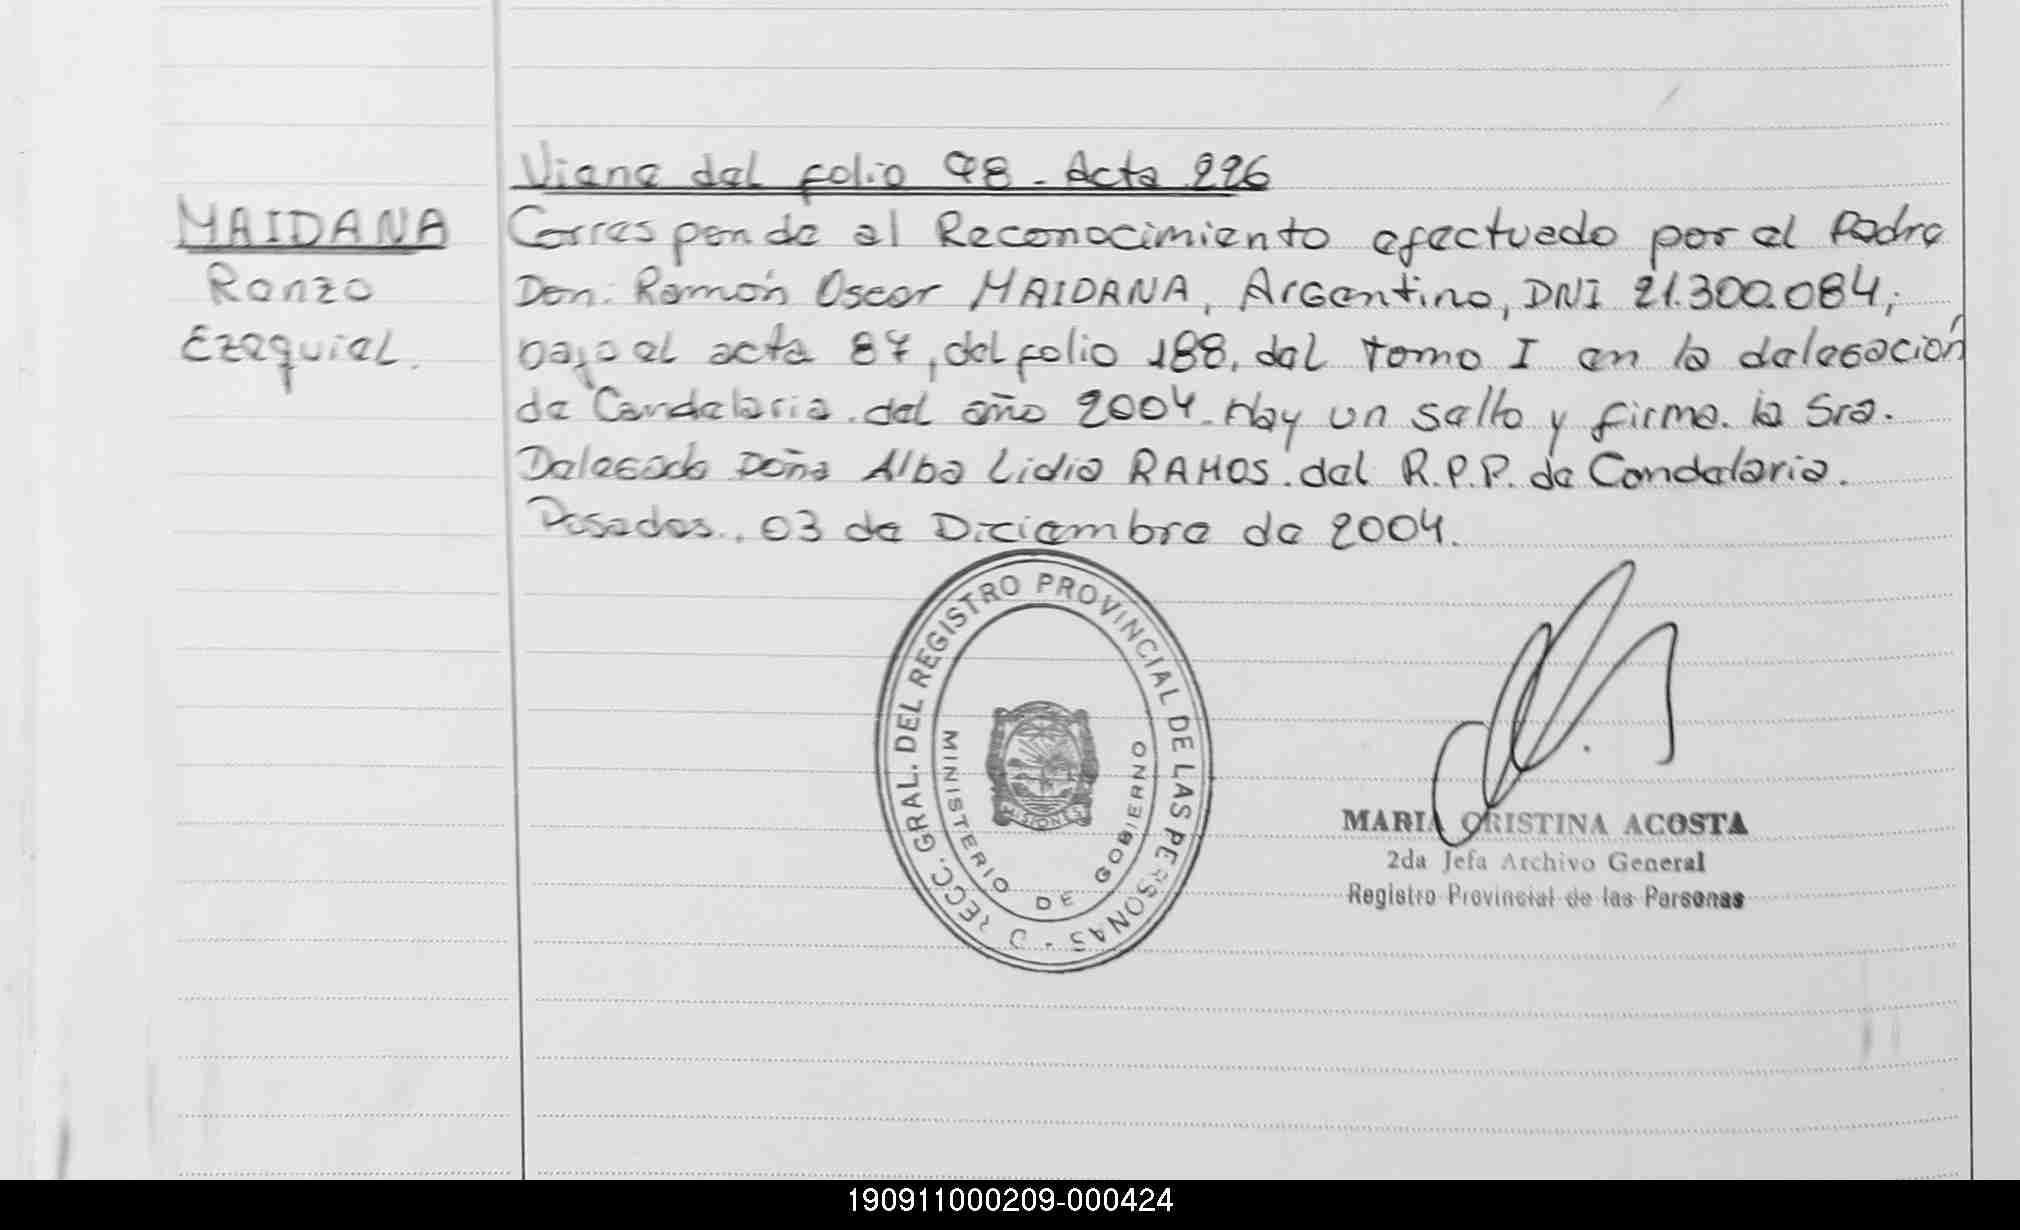 Viene del folio 98 - Acta 226
MAIDANA
Renzo
Ezequiel.
Corresponde al Reconocimiento efectuado por el Padre
Don: Ramón Oscar MAIDANA, Argentino, DNI 21.300.084,
bajo el acta 87, del folio 188, del tomo I en la delegación
de Candelaria. del año 2004. Hay un sello y firma. la Sra.
Delegada Doña Alba Lidia RAMOS. del R.P.P. de Candelaria.
Posadas., 03 de Diciembre de 2004.
DIRECC. GRAL. DEL REGISTRO PROVINCIAL DE LAS PERSONAS -
MINISTERIO DE GOBIERNO
MISIONES
MARIA CRISTINA ACOSTA
2da Jefa Archivo General
Registro Provincial de las Personas
190911000209-000424